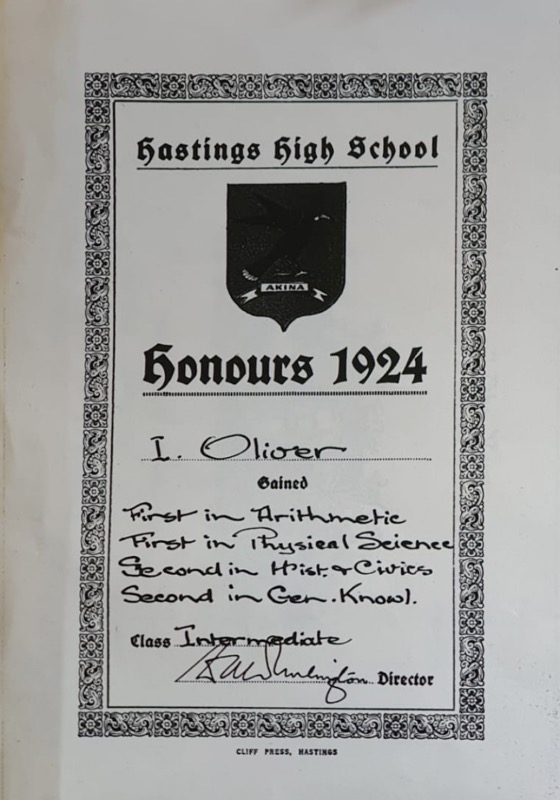 Hastings High School
AKINA
Honours 1924
I. Oliver
Gained
First in Arithmetic
First in Physical Science
Second in Hist. & Civics
Second in Gen. Knowl.
Class Intermediate
Director
CLIFF PRESS, HASTINGS